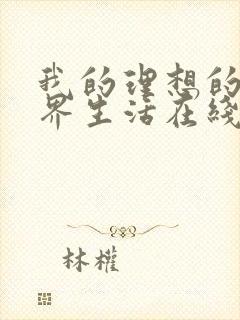 我的理想的
界生活在线
林权